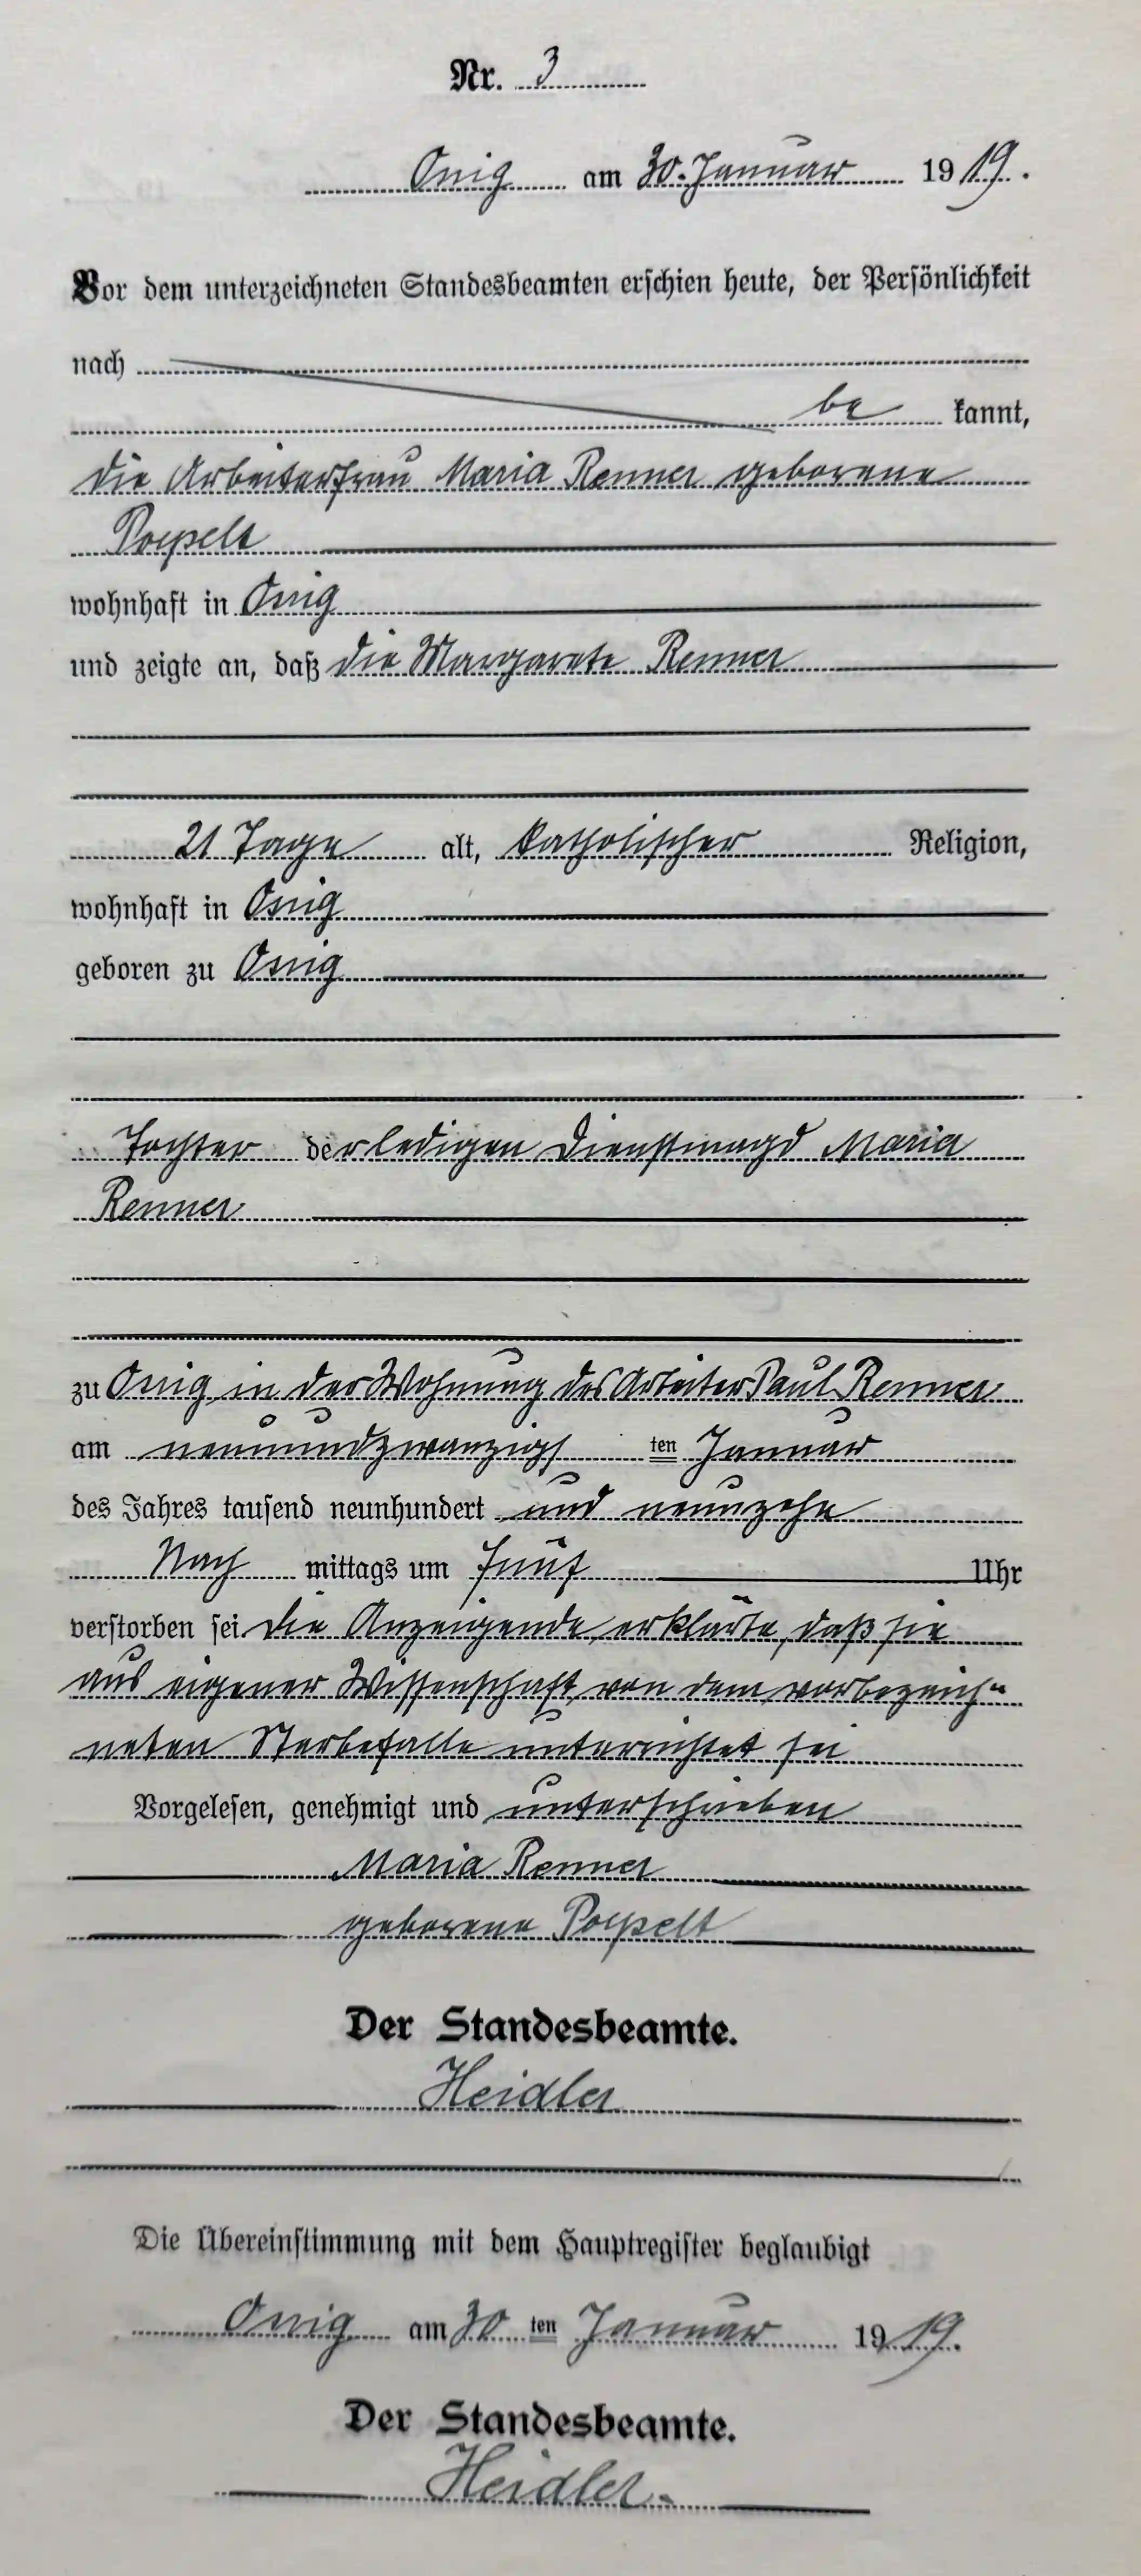 Nr. 3
Onig am 30. Januar 1919.
Vor dem unterzeichneten Standesbeamten erschien heute, der Persönlichkeit
nach
be kannt,
die Arbeiterfrau Maria Renner geborene
Poppelt
wohnhaft in Onig
und zeigte an, daß die Margarete Renner
21 Tage alt, katholischer Religion,
wohnhaft in Onig
geboren zu Onig
Tochter der ledigen Dienstmagd Maria
Renner
zu Onig in der Wohnung des Arbeiter Paul Renner
am neunundzwanzigs ten Januar
des Jahres tausend neunhundert und neunzehn
Nach mittags um fünf Uhr
verstorben sei. Die Anzeigende erklärte, daß sie
aus eigener Wissenschaft von dem vorbezeich-
neten Sterbefalle unterrichtet sei
Vorgelesen, genehmigt und unterschrieben
Maria Renner
geborene Poppelt
Der Standesbeamte.
Heidler
Die Übereinstimmung mit dem Hauptregister beglaubigt
Onig am 30 ten Januar 1919.
Der Standesbeamte.
Heidler.